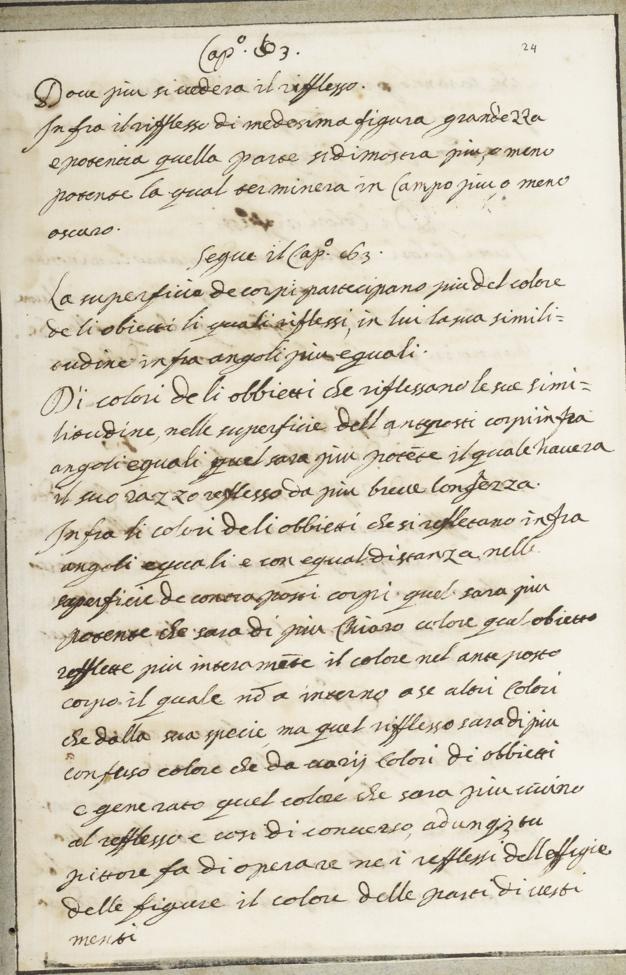 Cap.º 63.
24
Dove piu si vedera il rifflesso.
Infra il rifflesso di medesima figura grandezza
e potencia quella parte si dimostra piu, o meno
potente la qual terminera in Campo piu, o meno
oscuro.
Segue il Cap.º 63.
La superficie de corpi partecipano piu del colore
de li obietti li quali riflessi, in lui la sua simili=
tudine infra angoli piu equali.
Di colori de li obbietti che riflessano le sue simi=
litudine, nelle superficie dell'anteposti corpi infra
angoli equali quel sara piu potẽte il quale havera
il suo razzo reflesso da piu breve longhezza.
Infra li colori de li obbietti che si reflettano infra
angoli equali e con equal distanza nelle
superficie de contra posti corpi quel sara piu
potente che sara di piu Chiaro colore qual obietto
refflette piu interamẽte il colore nel ante posto
corpo il quale nõ a interno a se altri Colori
che dalla sua specie, ma quel rifflesso sara di piu
confuso colore che da varij Colori di obbietti
e generato quel colore che sara piu vicino
al refflesso e cosi di converso, adunqȝ tu
pittore fa di operare ne i refflessi dell effigie
delle figure il colore delle parti di vesti
menti